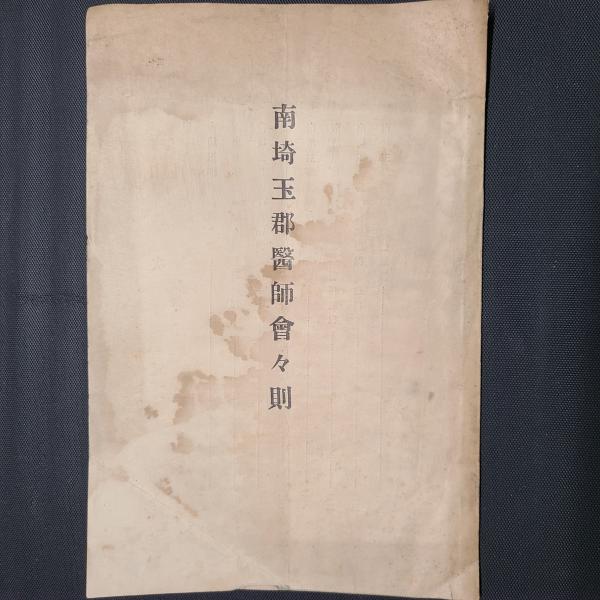 南埼玉郡醫師會々則